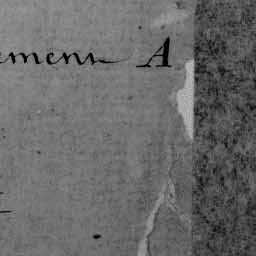 ement A